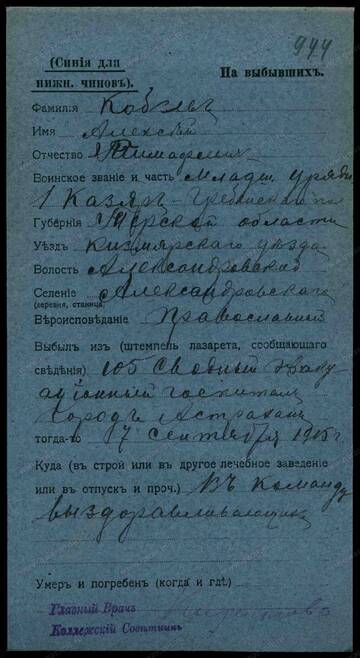 944
(Синія для
нижн. чиновъ).
На выбывшихъ.
Фамилія Кобецъ
Имя Алексѣй
Отчество Тимофеевич
Воинское званіе и часть младш. уряд
1 Кизляр-Гребенского п
Губернія Терской области
Уѣздъ Кизлярскаго уѣзда
Волость Александровской
Селеніе Александровскаго
(деревня, станица)
Вѣроисповѣданіе Православный
Выбылъ изъ (штемпель лазарета, сообщающаго
свѣдѣнія) 105 Сводный эваку-
аціонный госпиталь
городъ Астрахань
тогда-то 7 сентября 1915 г
Куда (въ строй или въ другое лечебное заведеніе
или въ отпускъ и проч.) Въ команду
выздоравливающих
Умеръ и погребенъ (когда и гдѣ.)
Главный Врачъ
Коллежскій Совѣтникъ